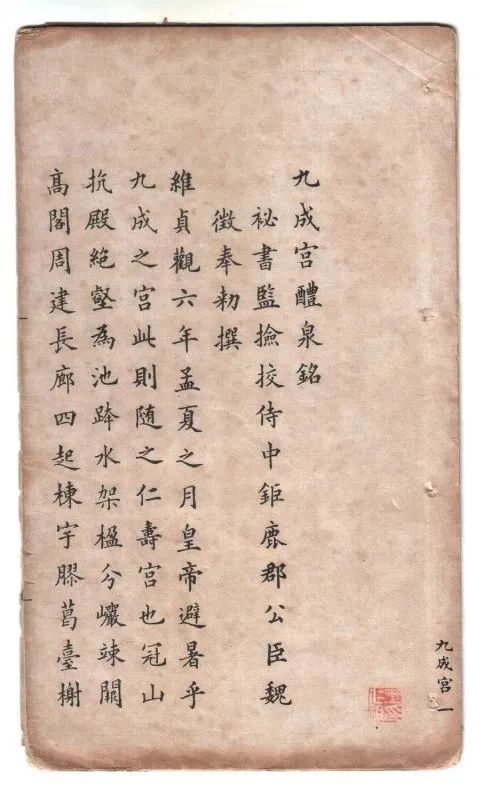 九成宮醴泉銘
祕書監撿挍侍中鉅鹿郡公臣魏
徵奉勑撰
維貞觀六年孟夏之月皇帝避暑乎
九成之宮此則随之仁壽宮也冠山
抗殿絶壑為池跨水架楹分巗竦闕
高閣周建長廊四起棟宇膠葛臺榭
九成宮 一